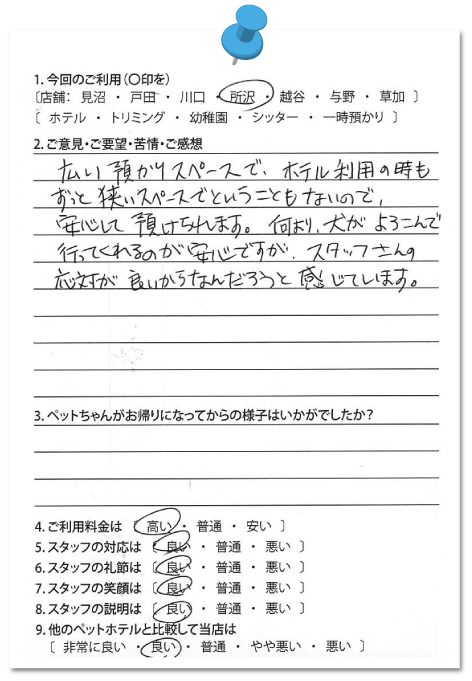 1. 今回のご利用（〇印を）
〔店舗： 見沼 ・ 戸田 ・ 川口 ・ 所沢 ・ 越谷 ・ 与野 ・ 草加 〕
〔 ホテル ・ トリミング ・ 幼稚園 ・ シッター ・ 一時預かり 〕
2. ご意見・ご要望・苦情・ご感想
広い預かりスペースで、ホテル利用の時も
ずっと狭いスペースでということもないので、
安心して預けられます。何より、犬がよろこんで
行ってくれるのが安心ですが、スタッフさんの
応対が良いからなんだろうと感じています。
3. ペットちゃんがお帰りになってからの様子はいかがでしたか？
4. ご利用料金は 〔 高い ・ 普通 ・ 安い 〕
5. スタッフの対応は 〔 良い ・ 普通 ・ 悪い 〕
6. スタッフの礼節は 〔 良い ・ 普通 ・ 悪い 〕
7. スタッフの笑顔は 〔 良い ・ 普通 ・ 悪い 〕
8. スタッフの説明は 〔 良い ・ 普通 ・ 悪い 〕
9. 他のペットホテルと比較して当店は
〔 非常に良い ・ 良い ・ 普通 ・ やや悪い ・ 悪い 〕